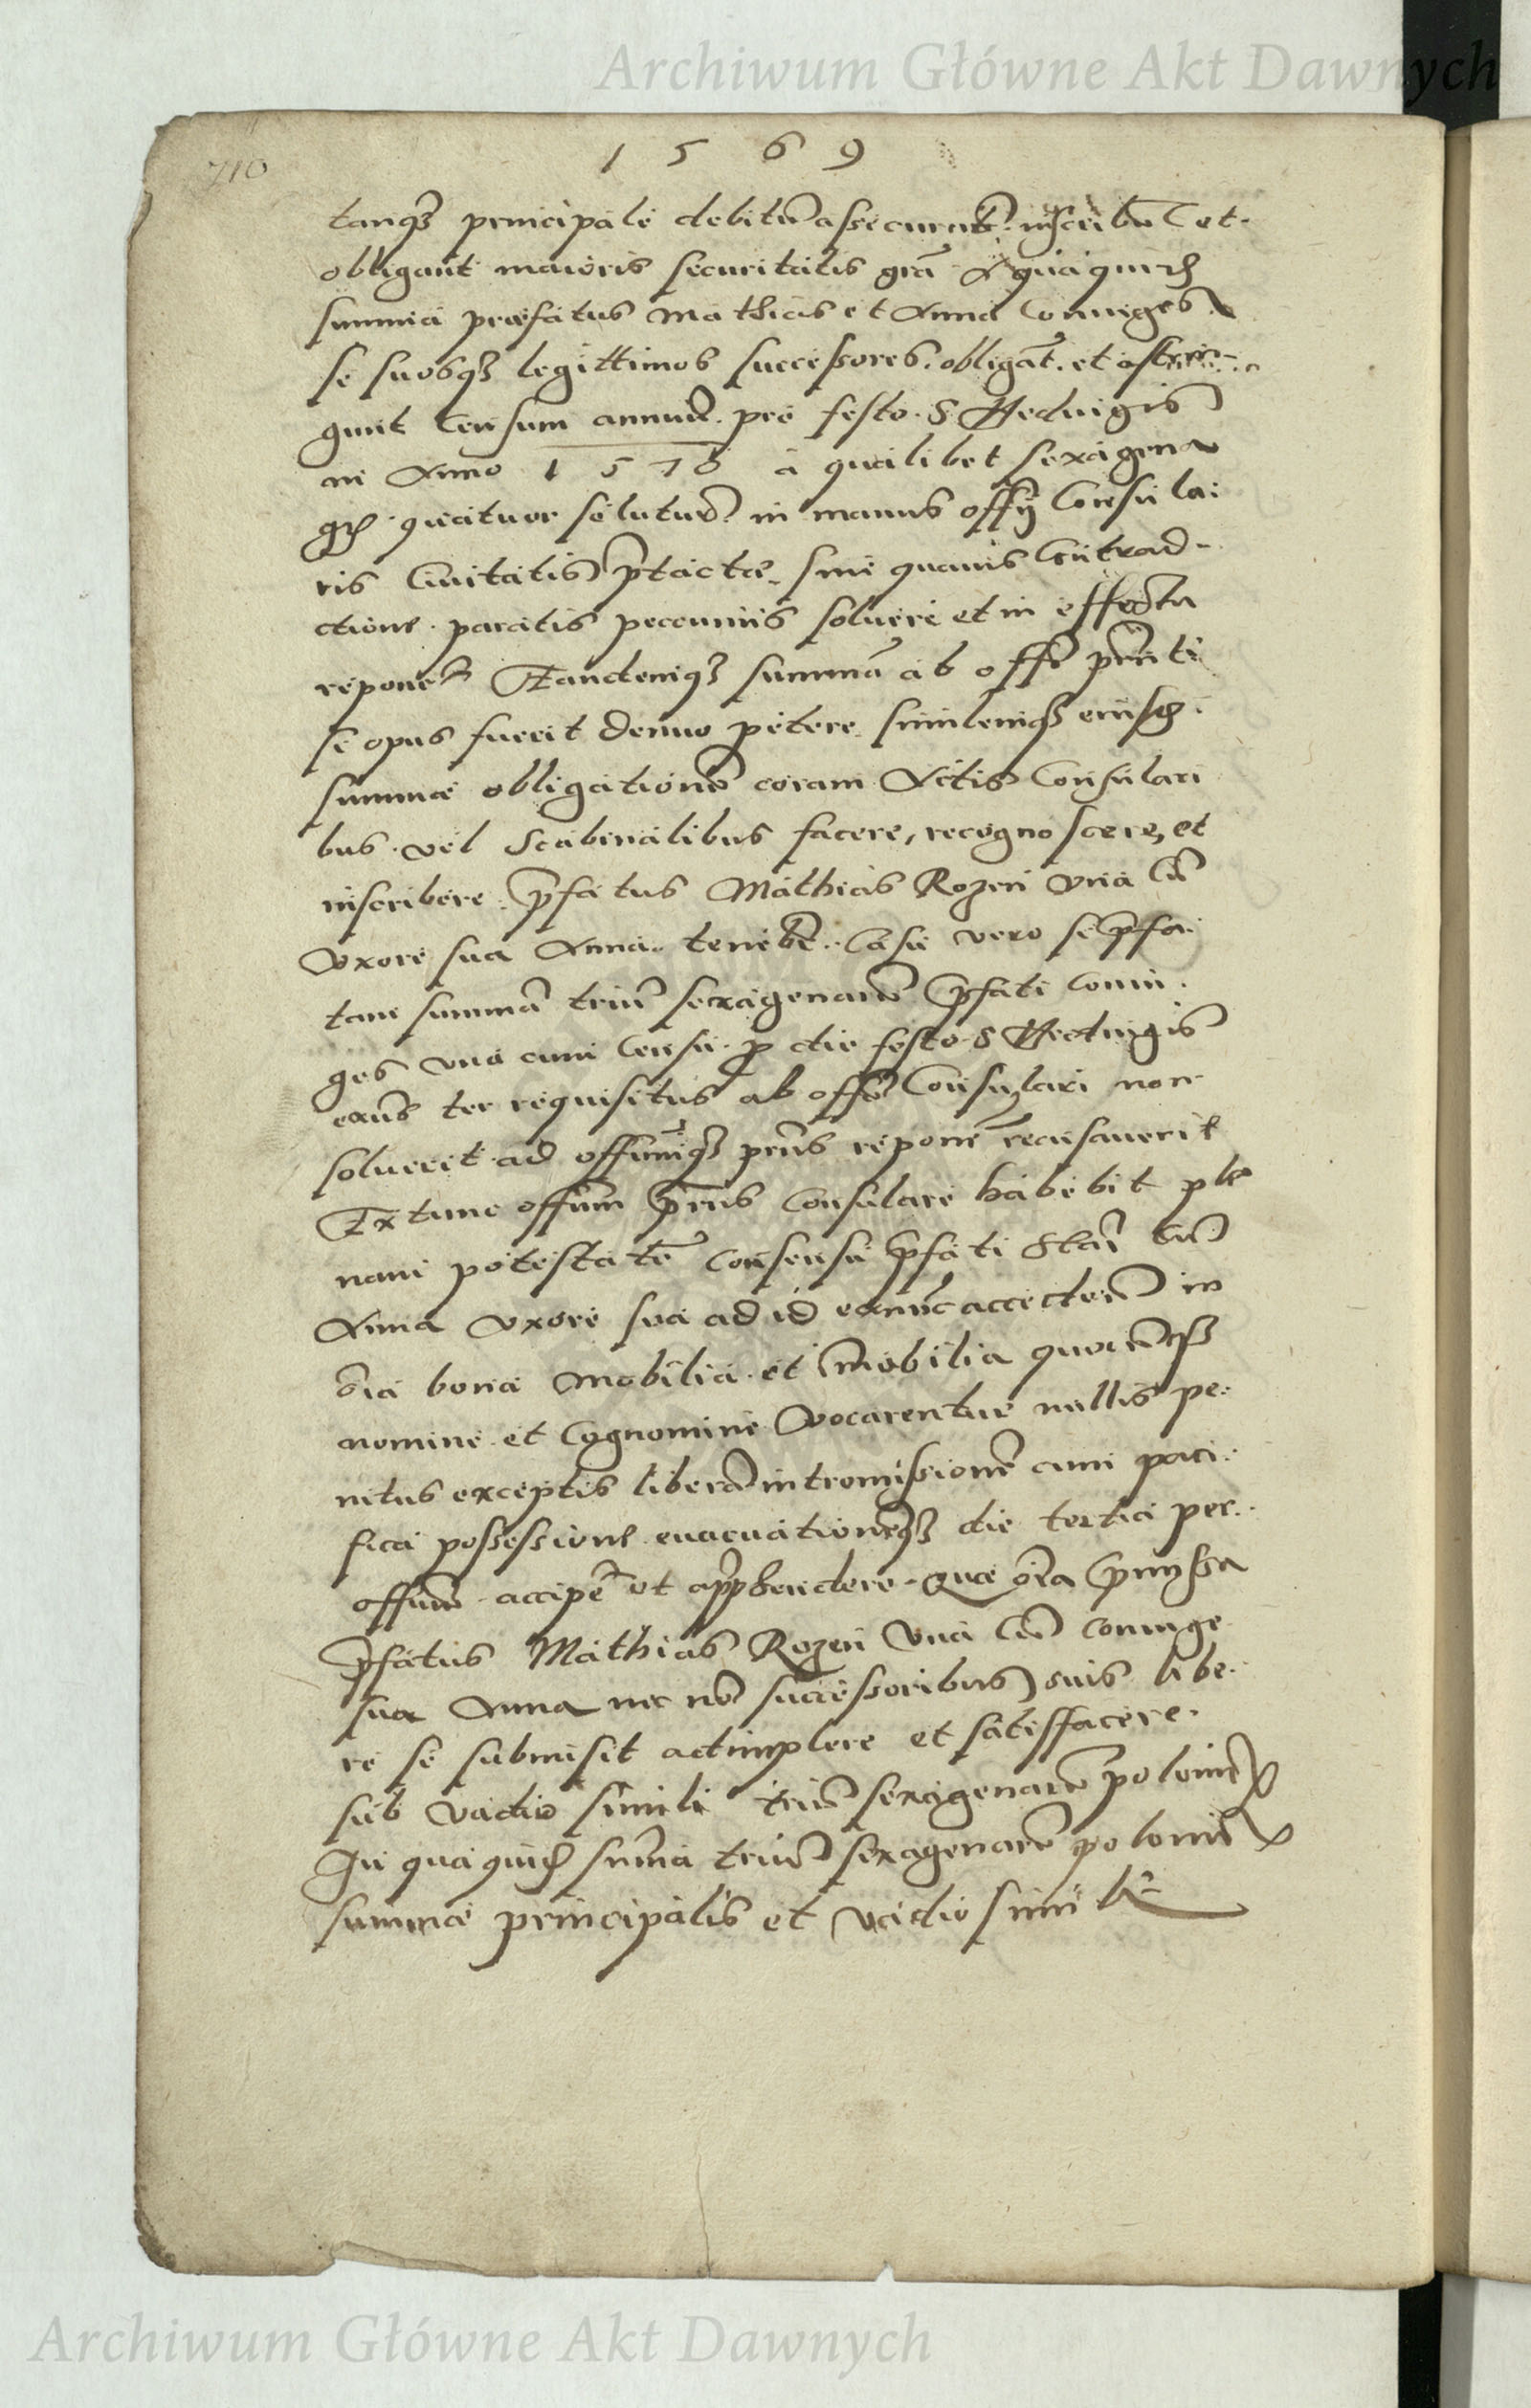 Archiwum Główne Akt Dawnych
710
1 5 6 9
tanqȝ principale debitū assecurāt inscribūt et
obligant maioris securitatis grā A qua quidē
summa præfatus Mathias et Anna Coniuges
se suosqȝ legittimos successores obligāt et astrin-
gunt Censum annuū pro festo S Heduigis
in Anno 1 5 7 0 a qualibet sexagena
quatuor soluturū in manus offÿ Consula:
ris Ciuitatis p̄tactæ sine quauis Cōntrad-
ctione paratis peccuniis soluere et in effectu
reponere Eandemqȝ summā ab offō pn̄ti
se opus fuerit denuo petere similemqȝ eiusdē
summæ obligationē coram Actis Consulari
bus vel Scabinalibus facere, recognoscere, et
inscribere p̄fatus Mathias Rozen vna cū
vxore sua Anna teneb Casu vero se p̄fa-
tam summā triū sexagenarū p̄fati Coniu-
ges vna cum Censu p die festo S Heduigis
ter requisitus ab offō Consulari non
soluerit ad offiumqȝ pn̄s reponē recusauerit
Extunc offium pn̄s Consulare habebit ple
nam potestatē Consensu p̄fati Stan̄ cū
Anna vxore sua ad id exnūc accedetē in
ōia bona Mobilia et Im̄obilia quocūqȝ
nomine et Cognomine vocarentur nullis pe:
nitus exceptis liberā intromissionē cum paci-
fica possessione euacuationeqȝ die tertia per
offium accipē et app̄hendere Quæ ōia p̄missa
p̄fatus Mathias Rozen vna cū coniuge
sua Anna nec nō successoribus suis libe-
re se submisit adimplere et satisfacere
sub vadio simili triū sexagenarū polonii
In qua quidē sum̄a triū sexagenarū polonii
summæ principalis et vadio simili
Archiwum Główne Akt Dawnych